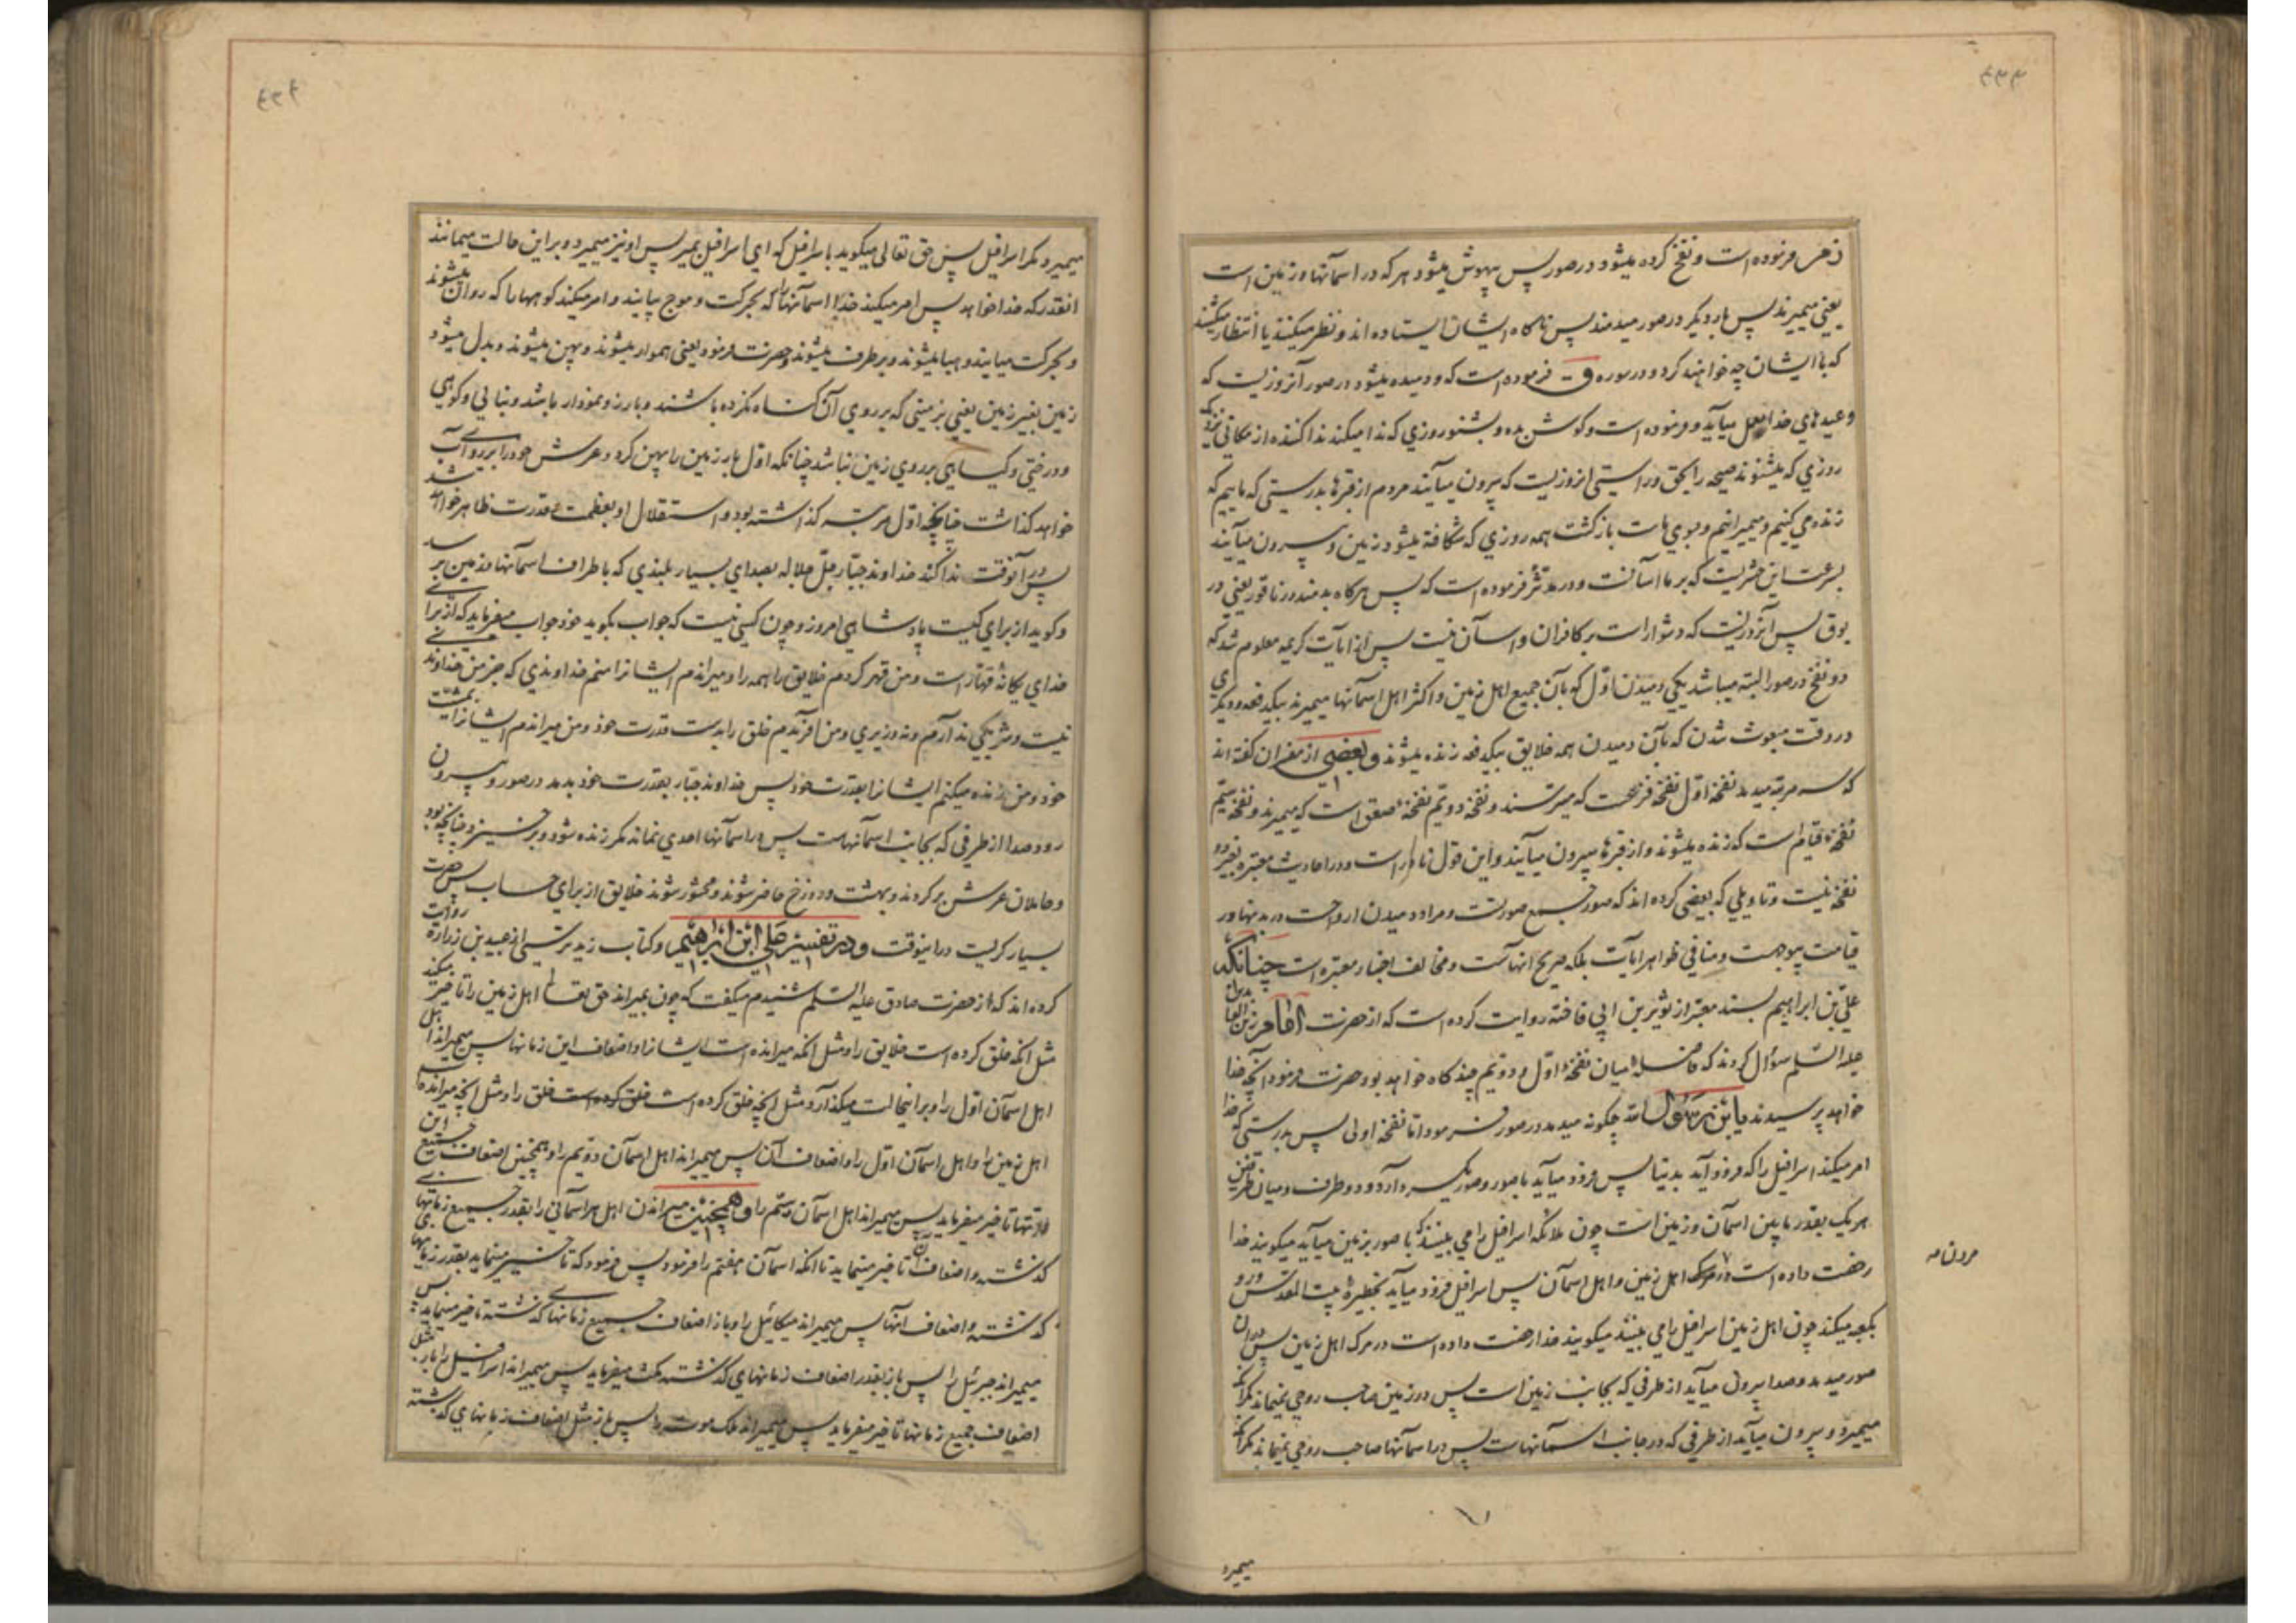 ۴۳۳
زمر فرموده است و نفخ کرده میشود در صور پس بیهوش میشود هر که در اسمانها و زمین است
یعنی میمیرند پس بار دیگر در صور میدمند پس ناکاه ایشان ایستاده اند و نظر میکنند یا انتظار میکشند
که با ایشان چه خواهند کرد و در سوره ق فرموده است که و دمیده میشود در صور آنروزیست که
وعیدهای خدا بعمل میآید و فرموده است و کوش بده و بشنو روزی که ندا میکند ندا کننده از مکانی نزدیک
روزی که میشنوند صیحه را بحق و راستی انروزیست که بیرون میآیند مردم از قبرها بدرستی که ماییم که
زنده می کنیم و میمیرانیم و بسوی ماست بازکشت همه روزی که شکافته میشود زمین و بیرون میآیند
بسرعت این حشریست که بر ما آسانست و در مدثر فرموده است که پس هرکاه بدمند در ناقور یعنی در
بوق پس آنروزیست که دشوار است بر کافران و آسان نیست پس از آیات کریمه معلوم شد که
دو نفخ در صور البته میباشد یکی دمیدن اوّل که بآن جمیع اهل زمین و اکثر اهل اسمانها میمیرند بیکدفعه و دیگری
در وقت مبعوث شدن که بآن دمیدن همه خلایق بیکدفعه زنده میشوند و بعضی از مفسران کفته اند
که سه مرتبه میدمد نفخه اوّل نفخه فزعست که میترسند و نفخه دویّم نفخهٔ صعق است که میمیرند و نفخه سیّم
نفخه قیام است که زنده میشوند و از قبرها بیرون میآیند و این قول نادر است و در احادیث معتبره بغیر دو
نفخه نیست و تاویلی که بعضی کرده اند که صور جمع صورتست و مراد دمیدن ارواحست در بدنها در
قیامت بیوجهست و منافی ظواهر آیات بلکه صریح انهاست و مخالف اخبار معتبره است چنانکه
علیّ بن ابراهیم بسند معتبر از ثویر بن ابی فاخته روایت کرده است که از حضرت امام زین العابدین
علیه السّلم سؤال کردند که فاصله میان نفخهٔ اوّل و دویّم چند کاه خواهد بود حضرت فرمود آنچه خدا
خواهد پرسیدند یا بن رسول الله چکونه میدمد در صور فرمود اما نفخه اولی پس بدرستی که خدا
امر میکند اسرافیل را که فرود آید بدنیا پس فرود میآید با صور و صور یکسر دارد و دو طرف و میان طرفین
هر یک بقدر مابین اسمان و زمین است چون ملائکه اسرافیل را می بینند که با صور بزمین میآید میکویند خدا
رخصت داده است در مرک اهل زمین و اهل اسمان پس اسرافیل فرود میآید بحظیرهٔ بیت المقدس و رو
بکعبه میکند چون اهل زمین اسرافیل را می بینند میکویند خدا رخصت داده است در مرک اهل زمین پس در ان
صور میدمد و صدا بیرون میآید از طرفی که بجانب زمین است پس در زمین صاحب روحی نمیماند مکر آنکه
میمیرد و بیرون میآید از طرفی که در جانب اسمانهاست پس در اسمانها صاحب روحی نمیماند مکر آنکه
میمیرد
۴۳۴
میمیرد مکر اسرافیل پس حق تعالی میکوید باسرافیل که ای اسرافیل بمیر پس او نیز میمیرد و براین حالت میمانند
انقدر که خدا خواهد پس امر میکند خدا اسمانها را که بحرکت و موج بیایند و امر میکند کوهها را که روان میشوند
و بحرکت میایند و هبا میشوند و برطرف میشوند و حضرت فرمود یعنی هموار میشوند و پهن میشوند و بدل میشود
زمین بغیر زمین یعنی بزمینی که بر روی آن کناه نکرده باشند و بارز و نمودار باشد و بنائی و کوهی
و درختی و کیاهی بر روی زمین نباشد چنانکه اوّل بار زمین را پهن کرد و عرش خود را بر روی آب
خواهد کذاشت چنانچه اوّل مرتبه کذاشته بود و استقلال او بعظمت و قدرت ظاهر خواهد شد
پس در آنوقت ندا کند خداوند جبّار جلّ جلاله بصدای بسیار بلندی که باطراف اسمانها و زمین برسد
و کوید از برای کیست پادشاهی امروز و چون کسی نیست که جواب بکوید خود جواب میفرماید که از برای
خدای یکانهٔ قهّار است و من قهر کردم خلایق را همه را و میراندم ایشانرا منم خداوندی که جز من خداوندی
نیست و شریکی ندارم و نه وزیری و من افریدم خلق را بدست قدرت خود و من میراندم ایشانرا بمشیّت
خود و من زنده میکنم ایشانرا بقدرت خود پس خداوند جبّار بقدرت خود بدمد در صور و بیرون
رود صدا از طرفی که بجانب اسمانهاست پس در اسمانها احدی نماند مکر زنده شود و برخیزد چنانچه بود
و حاملان عرش برکردند و بهشت و دوزخ حاضر شوند و محشور شوند خلایق از برای حساب پس حضرت
بسیار کریست در اینوقت و در تفسیر علی ابن ابراهیم و کتاب زید نرسی از عبید بن زراره روایت
کرده اند که از حضرت صادق علیه السلم شنیدم میکفت که چون بمیراند حق تعالی اهل زمین را تاخیر میکند
مثل انکه خلق کرده است خلایق را و مثل انکه میرانده است ایشانرا و اضعاف این زمانها پس میمیراند اهل
اهل اسمان اوّل را و بر اینحالت میکذارد و مثل انچه خلق کرده است خلق کرده است خلق را و مثل انچه میرانده است
اهل زمین را و اهل اسمان اوّل را و اضعاف آن پس میمیراند اهل اسمان دویّم را و همچنین اضعاف جمیع این
زمانها تاخیر میفرماید پس میمیراند اهل اسمان سیّم را و همچنین میراندن اهل هر اسمانی را بقدر جمیع زمانهای
کذشته و اضعاف ان تاخیر مینماید تا انکه اسمان هفتم را فرمود پس فرمود که تاخیر مینماید بقدر زمانهای
کذشته و اضعاف انها پس میمیراند میکائیل را و باز اضعاف جمیع زمانهای کذشته تاخیر مینماید پس
میمیراند جبرئیل را پس باز بقدر اضعاف زمانهای کذشته مکث میفرماید پس میمیراند اسرافیل را باز مثل
اضعاف جمیع زمانها تاخیر میفرماید پس میمیراند ملک موت را پس باز مثل اضعاف زمانهای کذشته